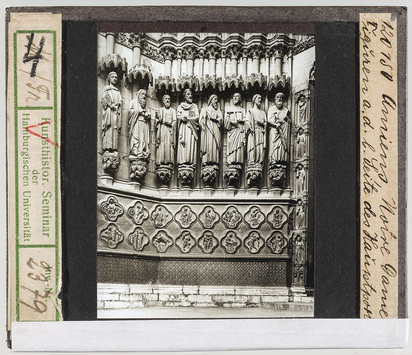 Kunsthistor. Seminar
der
Hamburgischen Universität
2379
Amiens Notre Dame
Figuren a. d. l. Seite des Hauptport.